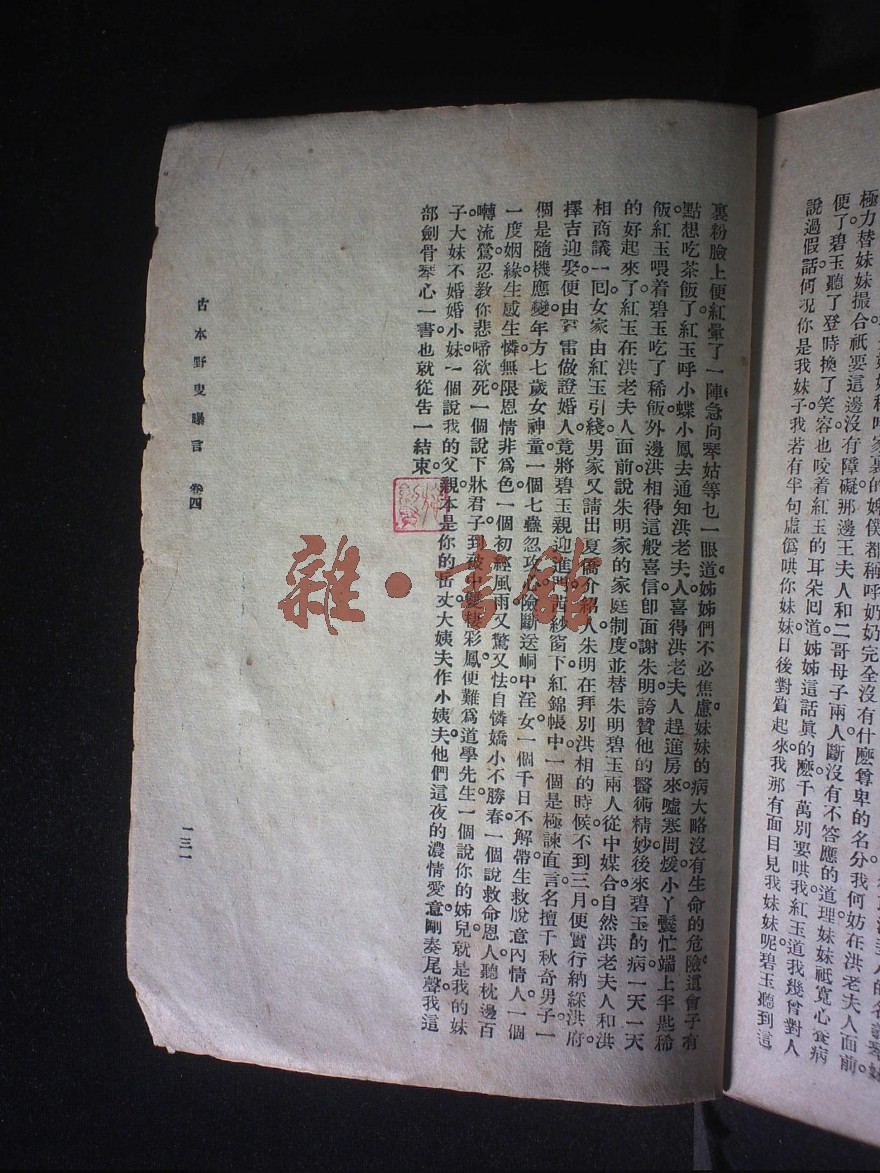 極力替妹妹撮合祇要這邊沒有障礙那邊王夫人和二哥母子兩人斷沒有不答應的道理妹妹祗寬心養病
便了碧玉聽了登時換了笑容也咬着紅玉的耳朵囘道姊姊這話眞的麽千萬別要哄我紅玉道我幾曾對人
說過假話何况你是我妹子我若有半句虛僞哄你妹妹日後對質起來我那有面目見我妹妹呢碧玉聽到這
裏粉臉上便紅暈了一陣急向琴姑等乜一眼道姊姊們不必焦慮妹妹的病大略沒有生命的危險這會子有
點想吃茶飯了紅玉呼小蝶小鳳去通知洪老夫人喜得洪老夫人趕進房來噓寒問煖小丫鬟忙端上半匙稀
飯紅玉喂着碧玉吃了稀飯外邊洪相得這般喜信卽面謝朱明誇贊他的醫術精妙後來碧玉的病一天一天
的好起來了紅玉在洪老夫人面前說朱明家的家庭制度並替朱明碧玉兩人從中媒合自然洪老夫人和洪
相商議一囘女家由紅玉引綫男家又請出夏僑介紹人朱明在拜別洪相的時候不到三月便實行納綵洪府
擇吉迎娶便由雷做證婚人竟將碧玉親迎進門茜紗窗下紅錦帳中一個是極諫直言名擅千秋奇男子一
個是隨機應變年方七歲女神童一個七蠱忽攻心險斷送峒中淫女一個千日不解帶生救脫意內情人一個
一度姻緣生感生憐無限恩情非爲色一個初經風雨又驚又怯自憐嬌小不勝春一個說救命恩人聽枕邊百
囀流鶯忍教你悲啼欲死一個說下牀君子到被中雙棲彩鳳便難爲道學先生一個說你的姊兒就是我的妹
子大妹不婚婚小妹一個說我的父親本是你的岳丈大姨夫作小姨夫他們這夜的濃情愛意剛奏尾聲我這
部劍骨琴心一書也就從告一結束
古本野叟曝言 卷四
一三一
雜·書館